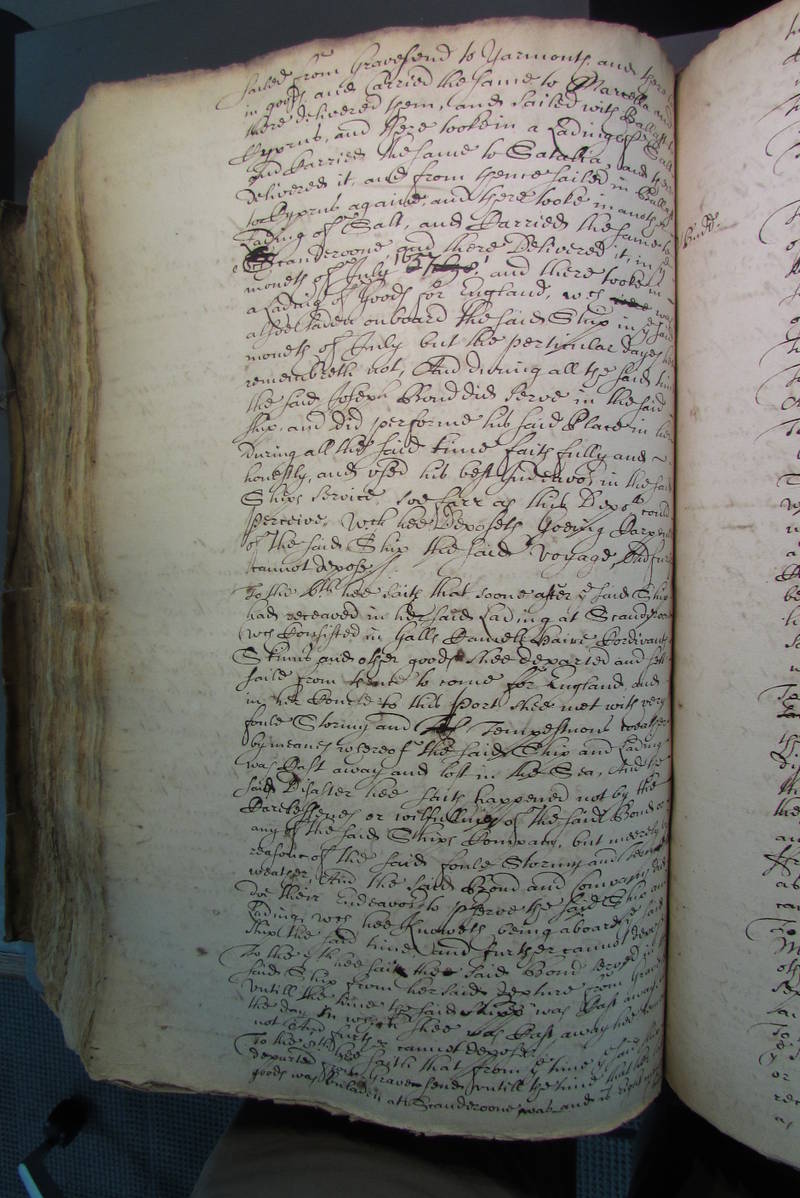 sailed from Gravesend to Yarmouth and there
in goods and Carried the same to Marcella and
there delivered them, and sailed with Ballast to
Cyprus, and there tooke in a Lading of Salt
and Carried the same to Satalia, and there
delivered it, and from thence sailed in Ballast
to Cyprus againe, and there tooke in another
Lading of Salt, and Carried the same to
Scanderoone, and there Delivered it, in ye
moneth of July 1657, and there tooke in
a Lading of Goods for England, wch was
all Laden onboard the said Ship in ye said
moneth of July but the perticular dayes hee
remembreth not, And during all the said time
the said Joseph Bond did serve in the said
ship, and did performe his said Place in her
during all the said time faithfully and
honestly, and used his best Indeavor in the said
Ships service soe farr as this Depot could
perceive, wch hee Deposeth Goeing Carpenter
of the said Ship the said voyage, And further
cannot depose
To the 6th hee saith that soone after ye said Ship
had receaved in her said Lading at Scanderoone
(wch Consisted in Galls Camells haire Cordivants
Skinns and other goods shee departed and sett
saile from thence to come for England, and
in her Course to this Port shee met with very
foule Stormy and Tempestuous weather
by meanes whereof the said Ship and Lading
was Cast away and lost in the Sea, And the
said Disaster hee saith happened not by the
Carelessnes or wilfullnes of the said Bond or
any of the said Ships Company, but meerely by
reason of the said foule Stormy and
weather, And the said Bond and Company did
doe their Indeavor to pserve the said Ship and
Lading, wch hee knoweth being aboard ye said
Ship the said time, and further cannot depose
To the 7th hee saith the said Bond served in ye
said Ship from her said depture from Gravesend
untill the time the said Shipe was Cast away
the day in which shee was Cast away hee
not And further cannot depose
To the 8th hee saith that from ye time ye said Ship
departed from Gravesend untill the time that her
goods was unladen at Scanderoone was and is
Bindr.